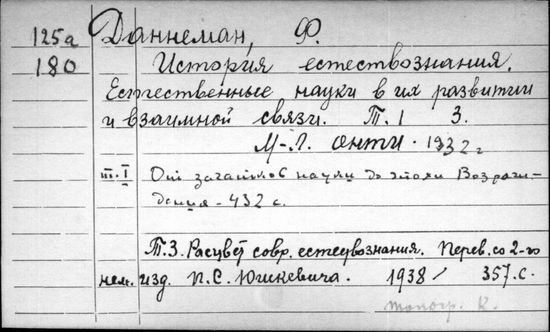 125а Даннеман, Ф.
180 История естествознания.
Естественные науки в их развитии
и взаимной связи. Т. 1 3.
М-Л. ОНТИ. 1932 г
т. I От зачатков науки до эпохи Возрож-
дения - 432 с.
Т.3. Расцвет совр. естествознания. Перев. со 2-го
нем. изд. П.С. Юшкевича. 1938 / 357.с.
топогр. К.